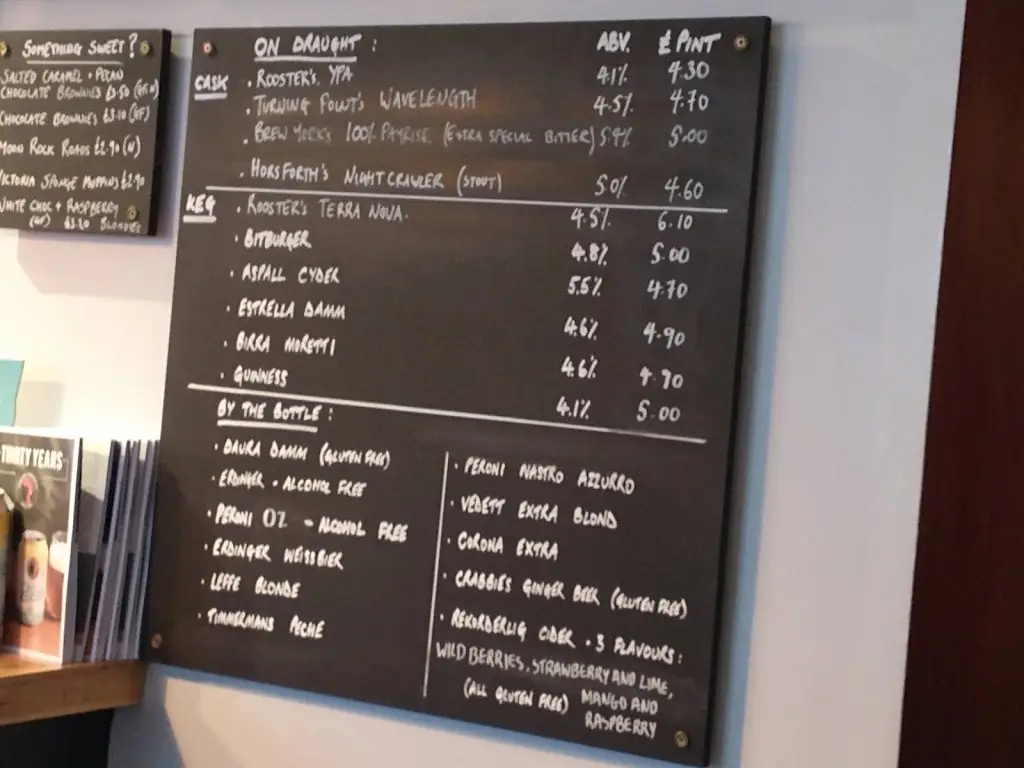 SOMETHING SWEET?
SALTED CARAMEL + PECAN
CHOCOLATE BROWNIES £3.50 (GF.N)
CHOCOLATE BROWNIES £3.10 (GF)
MOON ROCK ROADS £2.90 (N)
VIKTORIA SPONGE MUFFINS £2.90
WHITE CHOC + RASPBERRY
BLONDIES
ON DRAUGHT : ABV. £ PINT
CASK
· ROOSTER'S. YPA 4.1% 4.30
· TURNING POINT'S WAVELENGTH 4.5% 4.70
· BREW YORK'S 100% PAYRISE (EXTRA SPECIAL BITTER) 5.4% 5.00
· HORSFORTH'S NIGHTCRAWLER (STOUT) 5.0% 4.60
KEG
· ROOSTER'S TERRA NOVA. 4.5% 6.10
· BITBURGER 4.8% 5.00
· ASPALL CYDER 5.5% 4.70
· ESTRELLA DAMM 4.6% 4.90
· BIRRA MORETTI 4.6% 4.90
· GUINNESS 4.1% 5.00
BY THE BOTTLE :
· DAURA DAMM (GLUTEN FREE)
· ERDINGER - ALCOHOL FREE
· PERONI 0% - ALCOHOL FREE
· ERDINGER WEISSBIER
· LEFFE BLONDE
· TIMMERMANS PECHE
· PERONI NASTRO AZZURRO
· VEDETT EXTRA BLOND
· CORONA EXTRA
· CRABBIES GINGER BEER (GLUTEN FREE)
· REKORDERLIG CIDER · 3 FLAVOURS :
WILD BERRIES, STRAWBERRY AND LIME,
(ALL GLUTEN FREE) MANGO AND
RASPBERRY
THIRTY YEARS